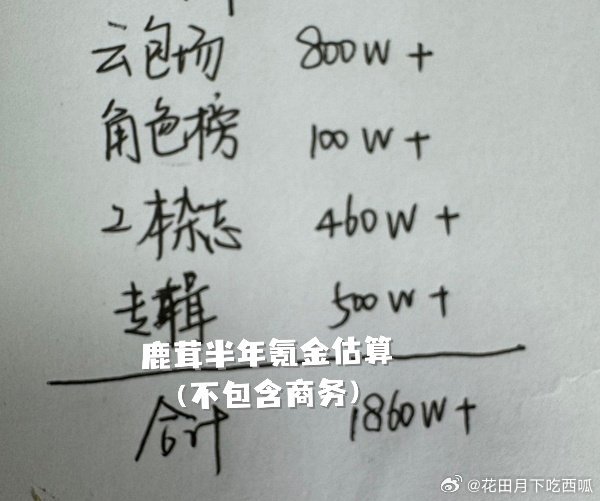 云包场 800W+
角色榜 100W+
2本杂志 460W+
专辑 500W+
鹿茸半年氪金估算
(不包含商务)
合计 1860W+
@花田月下吃西呱